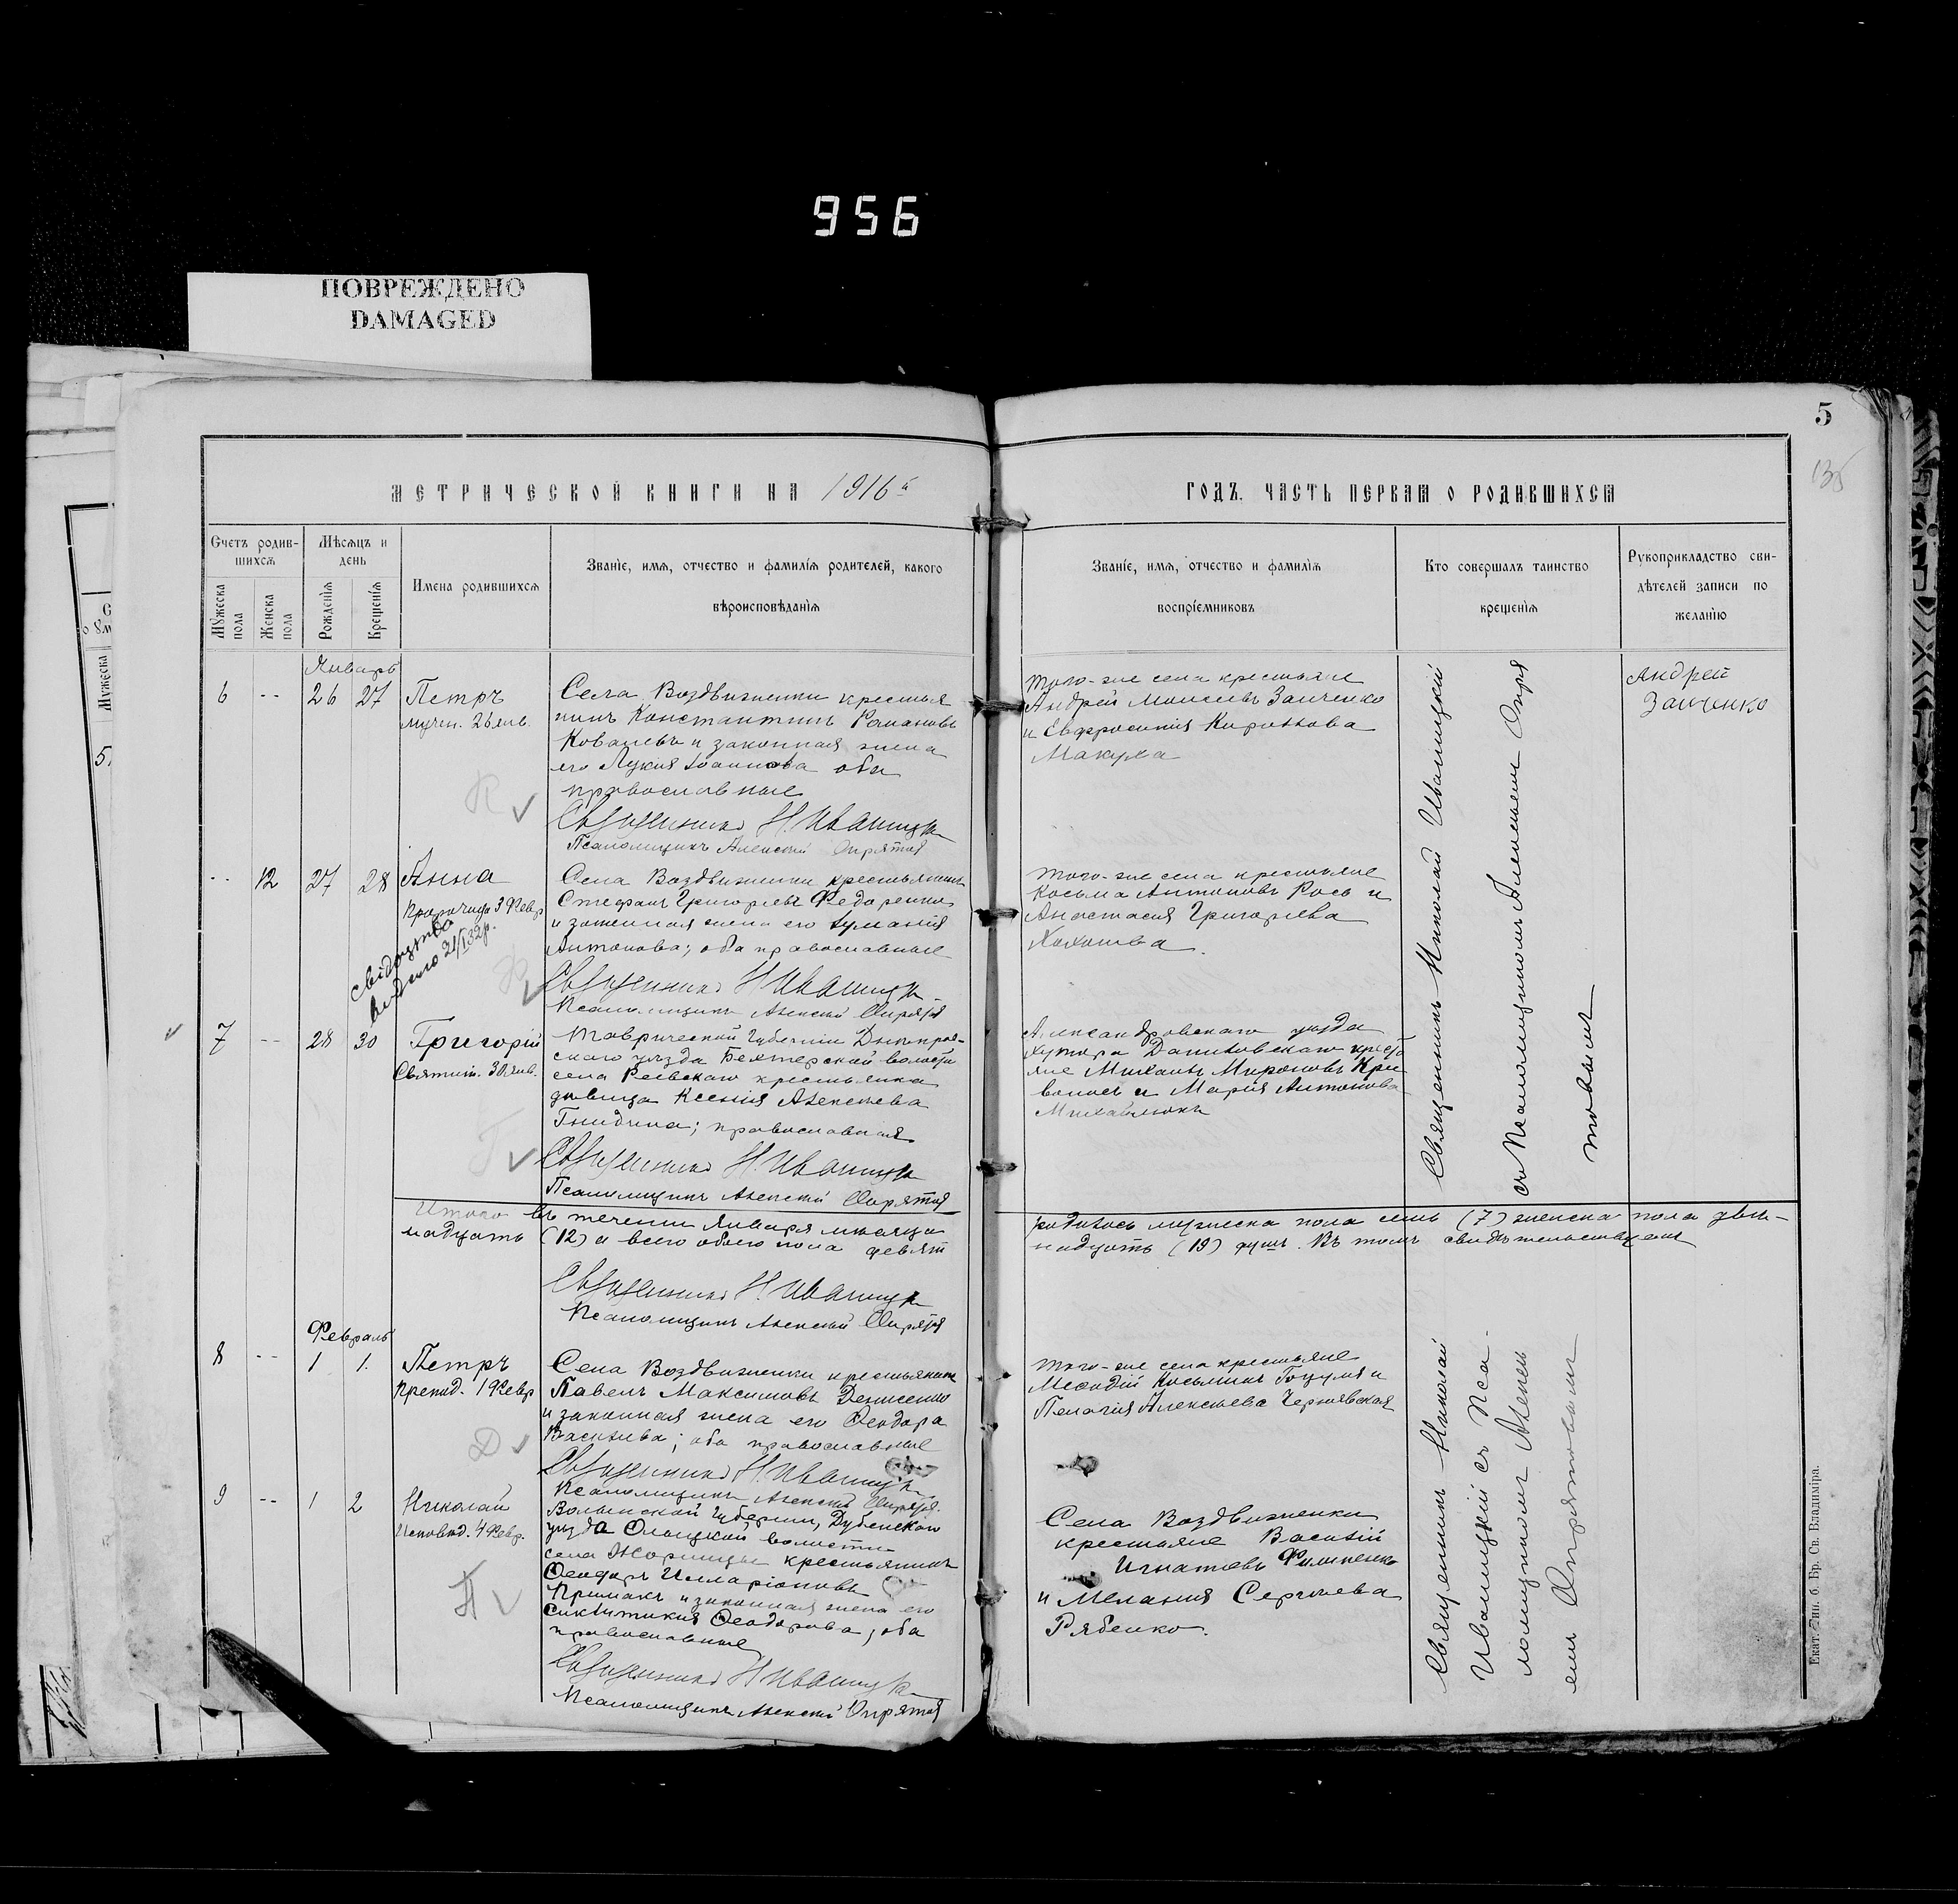 956
ПОВРЕЖДЕНО
DAMAGED
5
135
МЕТРИЧЕСКОЙ КНИГИ НА 1916й
ГОДЪ. ЧАСТЬ ПЕРВАЯ О РОДИВШИХСЯ
Счетъ родив-
шихся
Мѣсяцъ и
день
Мужеска пола
Женска пола
Рожденія
Крещенія
Имена родившихся
Званіе, имя, отчество и фамилія родителей, какого
вѣроисповѣданія
Званіе, имя, отчество и фамилія
воспріемниковъ
Кто совершалъ таинство
крещенія
Рукоприкладство сви-
дѣтелей записи по
желанію
Январь
6 -- 26 27 Петръ
мучен. 26 янв.
Села Воздвиженки крестья
нинъ Константинъ Романовъ
Ковалевъ и законная жена
его Лукія Іоаннова оба
православные
Священникъ Н. Иваницкій
Псаломщикъ Алексѣй Опрятов
того-же села крестьяне
Андрей Моисеевъ Заиченко
и Евфросинія Кириллова
Макуха
Андрей
Заиченко
-- 12 27 28 Анна
Пророчица 3 Февр
свідоцтво
видано 21/I 32р.
Села Воздвиженки крестьянинъ
Стефанъ Григорьевъ Федоренко
и законная жена его Іуліанія
Антонова; оба православные
Священникъ Н. Иваницкій
Псаломщикъ Алексѣй Опрятов
того-же села крестьяне
Косьма Антоновъ Рось и
Анастасія Григорьева
Хохотва
7 -- 28 30 Григорій
Святит. 30 янв.
Таврической губерніи Днѣпров-
скаго уѣзда Бехтерской волости
села Раевскаго крестьянка
дѣвица Ксенія Алексѣева
Гнидина; православная
Священникъ Н. Иваницкій
Псаломщикъ Алексѣй Опрятов
Александровскаго уѣзда
хутора Даниловскаго кресть
яне Михаилъ Мироновъ Кри
волапъ и Марія Антонова
Михайлюкъ
Священникъ Николай Иваницкій
съ Псаломщикомъ Алексѣемъ Опря
товымъ
Итого въ теченіи Января мѣсяца
родилось мужеска пола семь (7) женска пола двѣ-
надцать (12) а всего обоего пола девят
надцать (19) душъ. Въ томъ свидѣтельствуемъ
Священникъ Н. Иваницкій
Псаломщикъ Алексѣй Опрятов
Февраль
8 -- 1 1. Петръ
препод. 1 Февр
Села Воздвиженки крестьянинъ
Павелъ Максимовъ Денисенко
и законная жена его Ѳеодора
Васильева; оба православные
Священникъ Н. Иваницкій
Псаломщикъ Алексѣй Опрятов
того-же села крестьяне
Меѳодій Косьминъ Гоцуля и
Пелагія Алексѣева Чернявская
9 -- 1 2 Николай
Исповѣд. 4 Февр.
Волынской губерніи, Дубенскаго
уѣзда Олыцкой волости
села Жорнищы крестьянинъ
Ѳеодоръ Илларіоновъ
Примакъ и законная жена его
Синклитикія Ѳеодорова; оба
православные
Священникъ Н. Иваницкій
Псаломщикъ Алексѣй Опрятов
Села Воздвиженки
крестьяне Василій
Игнатьевъ Филипенко
и Меланія Сергѣева
Рябенко.
Священникъ Николай
Иваницкій съ Пса-
ломщикомъ Алексѣ
емъ Опрятовымъ
Екат. Тип. б. Бр. Св. Владиміра.